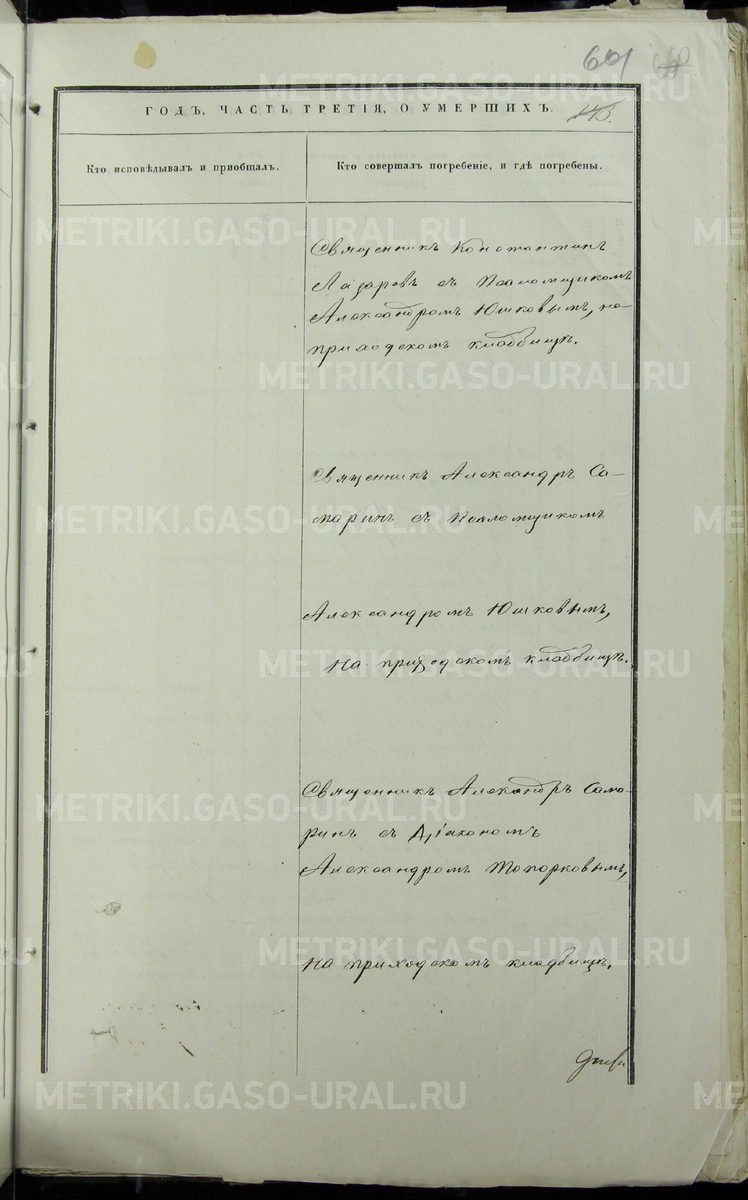 601
ГОДЪ, ЧАСТЬ ТРЕТІЯ, О УМЕРШИХЪ.
Кто исповѣдывалъ и пріобщалъ.
Кто совершалъ погребеніе, и гдѣ погребены.
Священникъ Константинъ
Лазаревъ съ Псаломщикомъ
Александромъ Юшковымъ, на
приходскомъ кладбищѣ.
Священникъ Александръ Са-
маринъ съ Псаломщикомъ
Александромъ Юшковымъ,
На приходскомъ кладбищѣ.
Священникъ Александръ Сама-
ринъ съ Діакономъ
Александромъ Топорковымъ,
На приходскомъ кладбищѣ.
METRIKI.GASO-URAL.RU